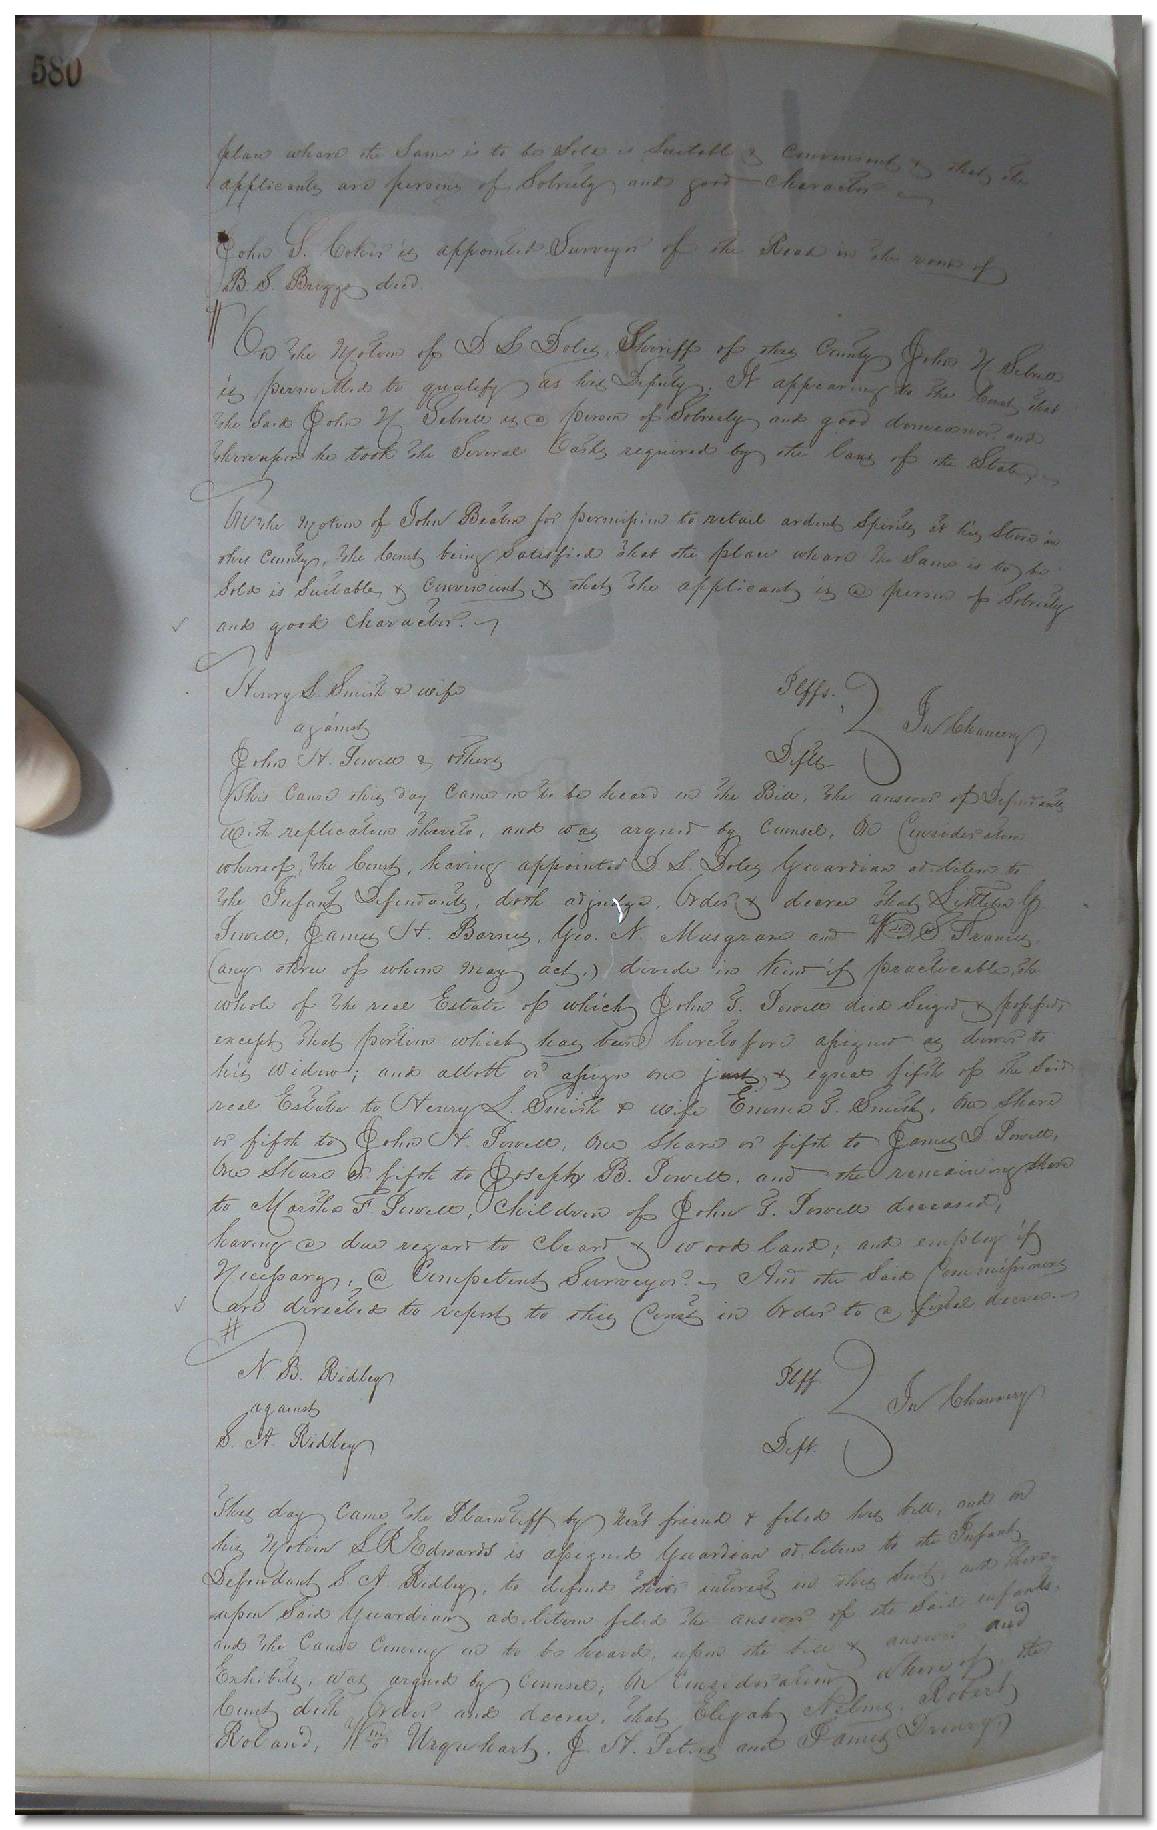 580
place where the Same is to be Sold is Suitable & convenient & that the
applicants are persons of Sobriety and good character
John S. is appointed Surveyor of the Road in the room of
B. S. Briggs decd.
On the Motion of D S Doles, Sheriff of this County John N Sebrell
is permitted to qualify as his Deputy. It appearing to the Court that
the Said John N Sebrell is a person of Sobriety and good demeanor, and
thereupon he took the Several Oaths required by the laws of the State.
On the Motion of John Beaton for permission to retail ardent Spirits at his Store in
this County, the Court being Satisfied that the place where the Same is to be
Sold is Suitable & convenient, & that the applicant is a person of Sobriety
and good character.
Henry L. Smith & wife Plffs.
against In Chancery
John H. Powell & others Defts
This Cause this day came on to be heard on the Bill, the answer of Defendants
with replication thereto, and was argued by Counsel, On Consideration
whereof, the Court, having appointed D. S. Doles Guardian ad-litem to
the Infant Defendants, doth adjudge, Order & decree that Littleton
Powell, James H. Barnes, Geo. N. Musgrave and Wm S Francis,
(any three of whom may act,) divide in Kind if practicable, the
whole of the real Estate of which John G. Powell died Seized & possessed,
except that portion which has been heretofore assigned as dower to
his widow; and allott or assign one just & equal fifth of the Said
real Estate to Henry L. Smith & wife Emma G. Smith, One Share
or fifth to John H. Powell, One Share or fifth to James D Powell,
One Share or fifth to Joseph B. Powell, and the remaining Share
to Martha F. Powell, Children of John G. Powell deceased,
having a due regard to cleard & wood land; and employ if
Necessary, a Competent Surveyor. And the Said Commissioners
are directed to report to this Court in Order to a final decree.
#
N. B. Ridley Plff.
against In Chancery
S. A. Ridley Deft.
This day came the Plaintiff by Next friend & filed his bill, and on
his Motion S R Edwards is assigned Guardian ad litem to the Infant
Defendant S A Ridley, to defend their interest in this Suit, and there-
upon Said Guardian ad-litem filed the answer of the Said infants,
and the Cause Coming on to be heard, upon the bill & answer and
Exhibits, was argued by Counsel; On Consideration whereof, the
Court doth Order and decree, that Elijah Nelms, Robert
Roland, Wm Urquhart, J. H. Peters and James Drewry